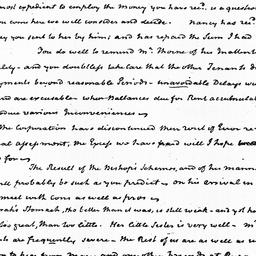 most expedient to employ the money you have rec.d is a question
you come here we will consider and decide. Nancy has rec.d
you sent to her by him; and has repaid the Sum I had
You do well to remind Mr. Thorne of his Inattent
and you doubtless take care that the other Tenants do
payments beyond reasonable Periods — unavoidable Delays w
are excusable — when Ballances due for Rent accumulat
produce various Inconveniences —
The Corporation have discontinued their Writ of Error
assessment, the Excess we have paid will I hope
for —
The Result of the Bishop's Schemes, and of his man
will probably be such as you predict — on his arrival in
meet with cons as well as pros —
Stomach, tho better than it was, is still weak — and yet
too great, than too little. Her little Sister is very well —
are frequently severe — The Rest of us are as well as